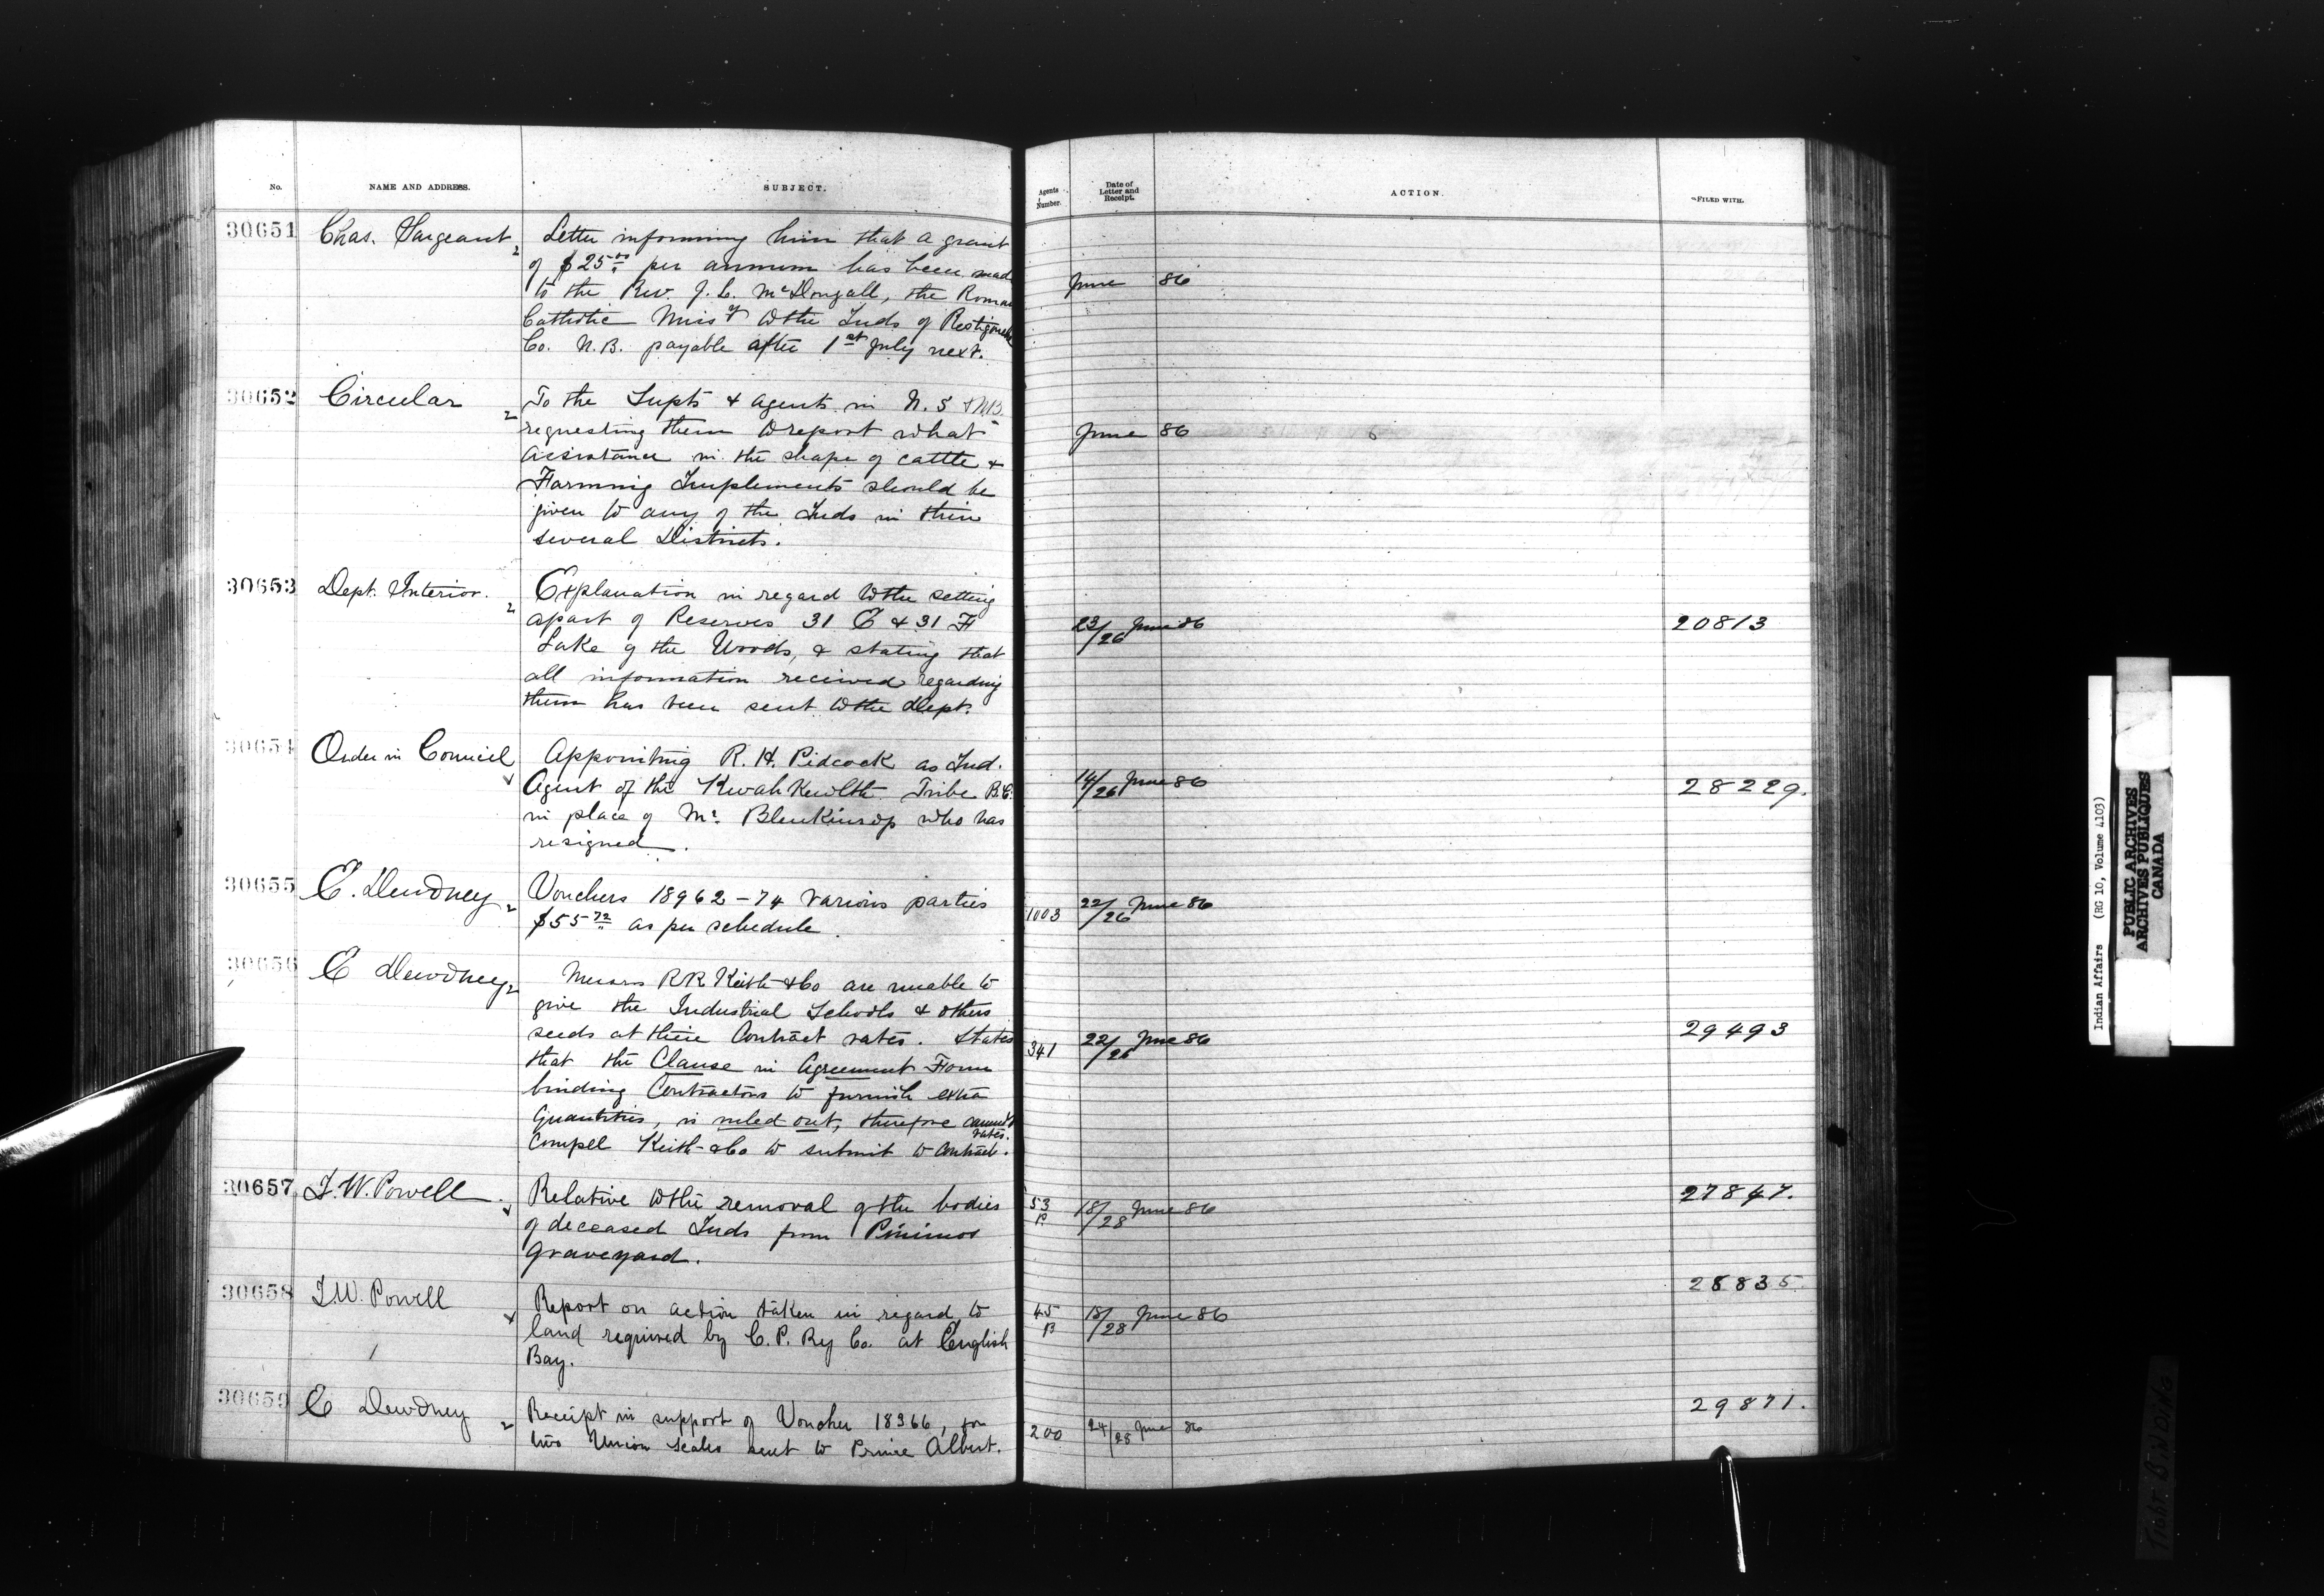 No. NAME AND ADDRESS. SUBJECT. Agents Number. Date of Letter and Receipt. ACTION. FILED WITH.
30651 Chas. Sargeant Letter informing him that a grant
of $25.00 per annum has been mad
to the Rev. J. L. McDougall, the Roman
Catholic Missy to the Inds of Restigouche
Co. N.B. payable after 1st July next.
June 86
30652 Circular To the Supts & Agents in N.S & N.B.
requesting them to report what
assistance in the shape of cattle &
Farming Implements should be
given to any of the Inds in their
several Districts.
June 86
30653 Dept. Interior. Explanation in regard to the setting
apart of Reserves 31 E & 31 F
Lake of the Woods, & stating that
all information received regarding
them has been sent to the Dept.
23/26 June 86 20813
30654 Order in Council Appointing R. H. Pidcock as Ind.
Agent of the KwahKewlth Tribe B.C.
in place of Mr. Blenkinsop who has
resigned.
14/26 June 86 28229.
30655 E. Dewdney Vouchers 18962-74 various parties
$55 72 as per schedule.
1003 22/26 June 86
30656 E Dewdney Messrs R R Keith & Co are unable to
give the Industrial Schools & others
seeds at their Contract rates. States
that the Clause in Agreement Form
binding Contractors to furnish extra
quantities, is ruled out, therefore cannot
compel Keith & Co to submit to contract rates.
341 22/26 June 86 29493
30657 I. W. Powell Relative to the removal of the bodies
of deceased Inds from
graveyard.
53 P. 18/28 June 86 27847.
30658 I. W. Powell Report on action taken in regard to
land required by C. P. Ry Co. at English
Bay.
45 B 18/28 June 86 28835
30659 E Dewdney Receipt in support of Voucher 18366, for
two Union Scales sent to Prince Albert.
200 24/28 June 86 29871.
Indian Affairs (RG 10, Volume 4103)
PUBLIC ARCHIVES
ARCHIVES PUBLIQUES
CANADA
TIGHT BINDING